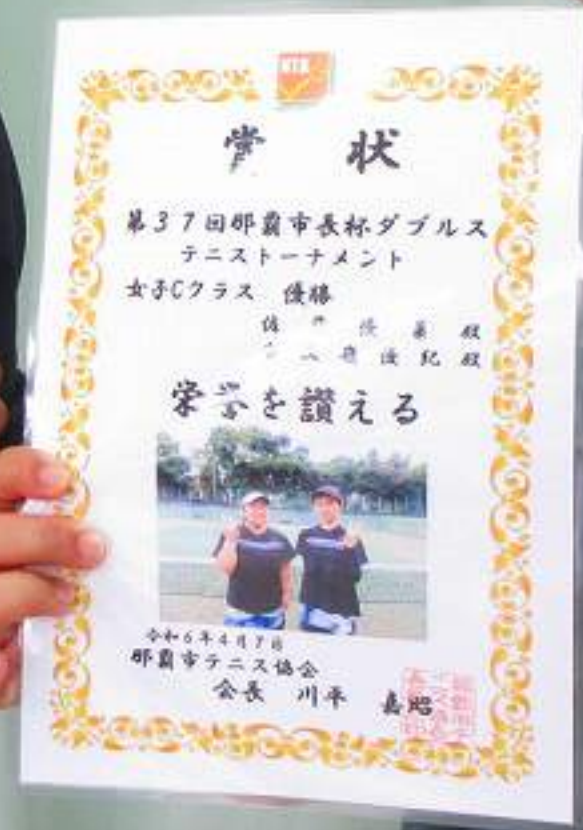 NTA
賞 状
第37回那覇市長杯ダブルス
テニストーナメント
女子Cクラス 優勝
殿
優紀 殿
栄誉を讃える
令和6年4月7日
那覇市テニス協会
会長 川平 嘉昭